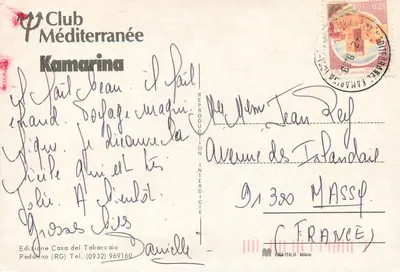 Club
Méditerranée
Kamarina
il fait beau. il fait
grand. Voyage magni-
fique. Je découvre la
Sicile qui est très
jolie. A bientôt
Grosses bises
Danielle
Edizione Casa del Tabaccaio
Pedalino (RG) Tel. (0932) 969160
REPRODUCTION INTERDITE
Jean Rey
Avenue des Islandais
91300 MASSY
(FRANCE)
ITALIA Milano